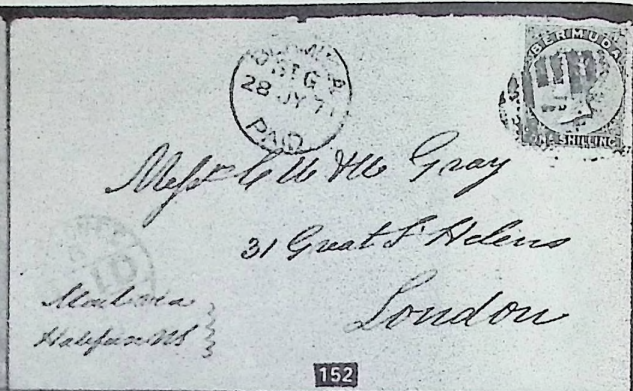 BERMUDA
ONE SHILLING
BERMUDA
ST G
28 JY 71
PAID
Messrs Gray
31 Great St Helens
London
Mail via
Halifax NS
152